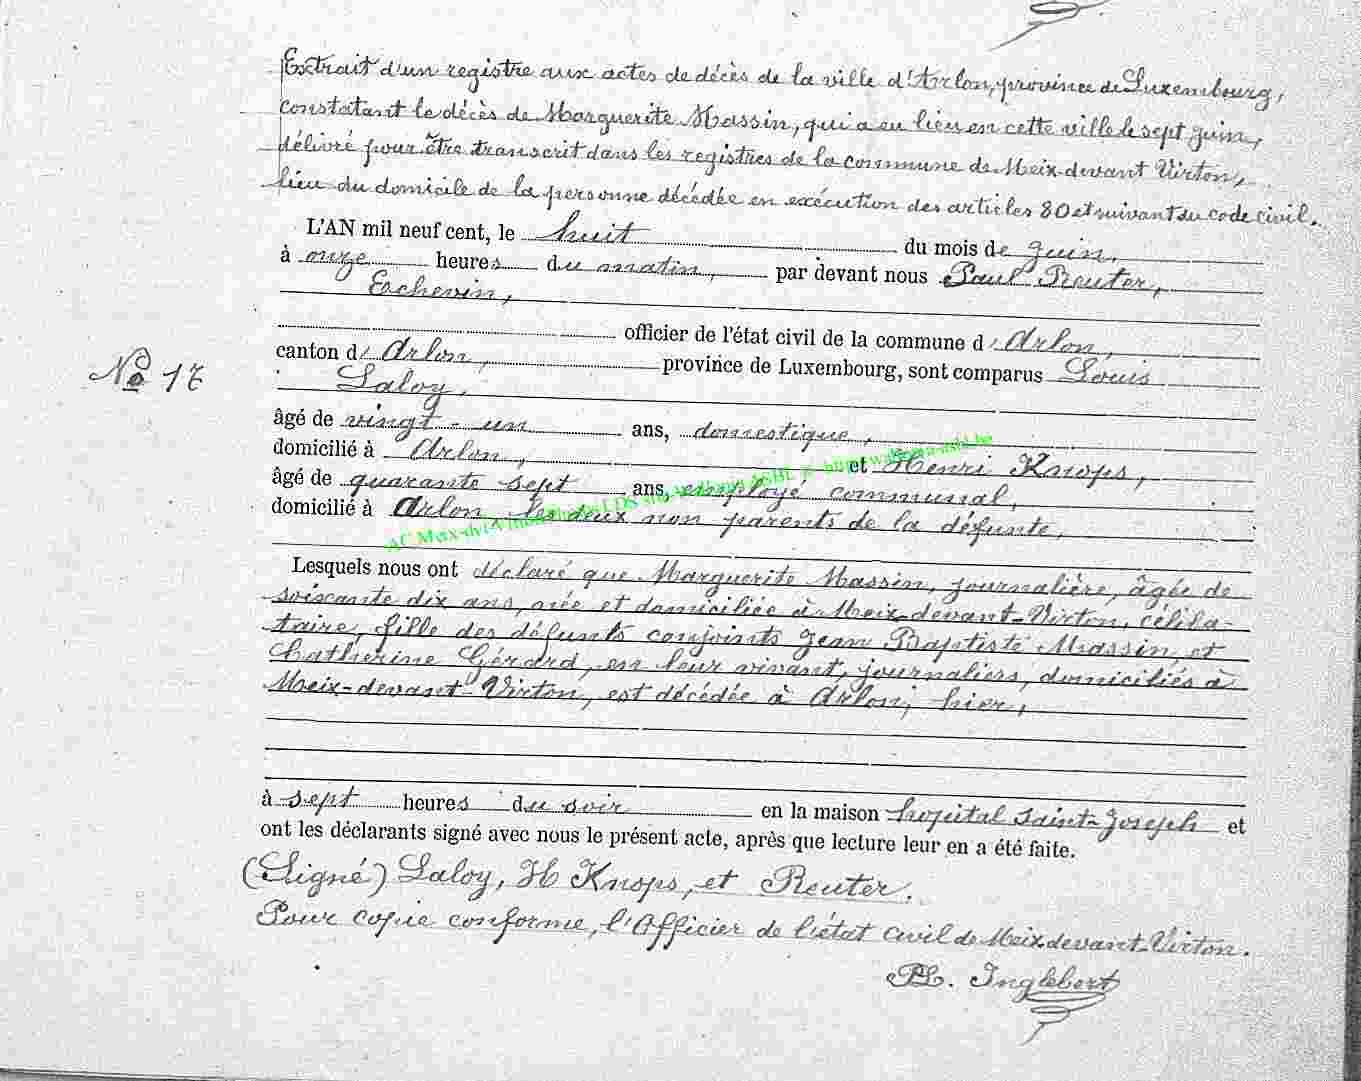 Extrait d'un registre aux actes de décès de la ville d'Arlon, province de Luxembourg,
constatant le décès de Marguerite Massin, qui a eu lieu en cette ville le sept juin,
délivré pour être transcrit dans les registres de la commune de Meix-devant Virton,
lieu du domicile de la personne décédée en exécution des articles 80 et suivant du code civil.
L'AN mil neuf cent, le huit du mois de juin,
à onze heures du matin, par devant nous Paul Reuter,
Eschevin,
officier de l'état civil de la commune d'Arlon,
canton d'Arlon, province de Luxembourg, sont comparus Louis
Laloy,
N° 17
âgé de vingt-un ans, domestique,
domicilié à Arlon, et Henri Knops,
âgé de quarante sept ans, employé communal,
domicilié à Arlon, les deux non parents de la défunte,
AC Meix-dvt-Virton
Lesquels nous ont déclaré que Marguerite Massin, journalière, âgée de
soixante dix ans, née et domiciliée à Meix-devant-Virton, céliba-
taire, fille des défunts conjoints Jean Baptiste Massin, et
Chatherine Gérard, en leur vivant, journaliers, domiciliés à
Meix-devant-Virton, est décédée à Arlon, hier,
à sept heures du soir en la maison hopital Saint-Joseph et
ont les déclarants signé avec nous le présent acte, après que lecture leur en a été faite.
(Signé) Laloy, H Knops, et Reuter.
Pour copie conforme, l'Officier de l'état civil de Meix devant-Virton.
Inglebert